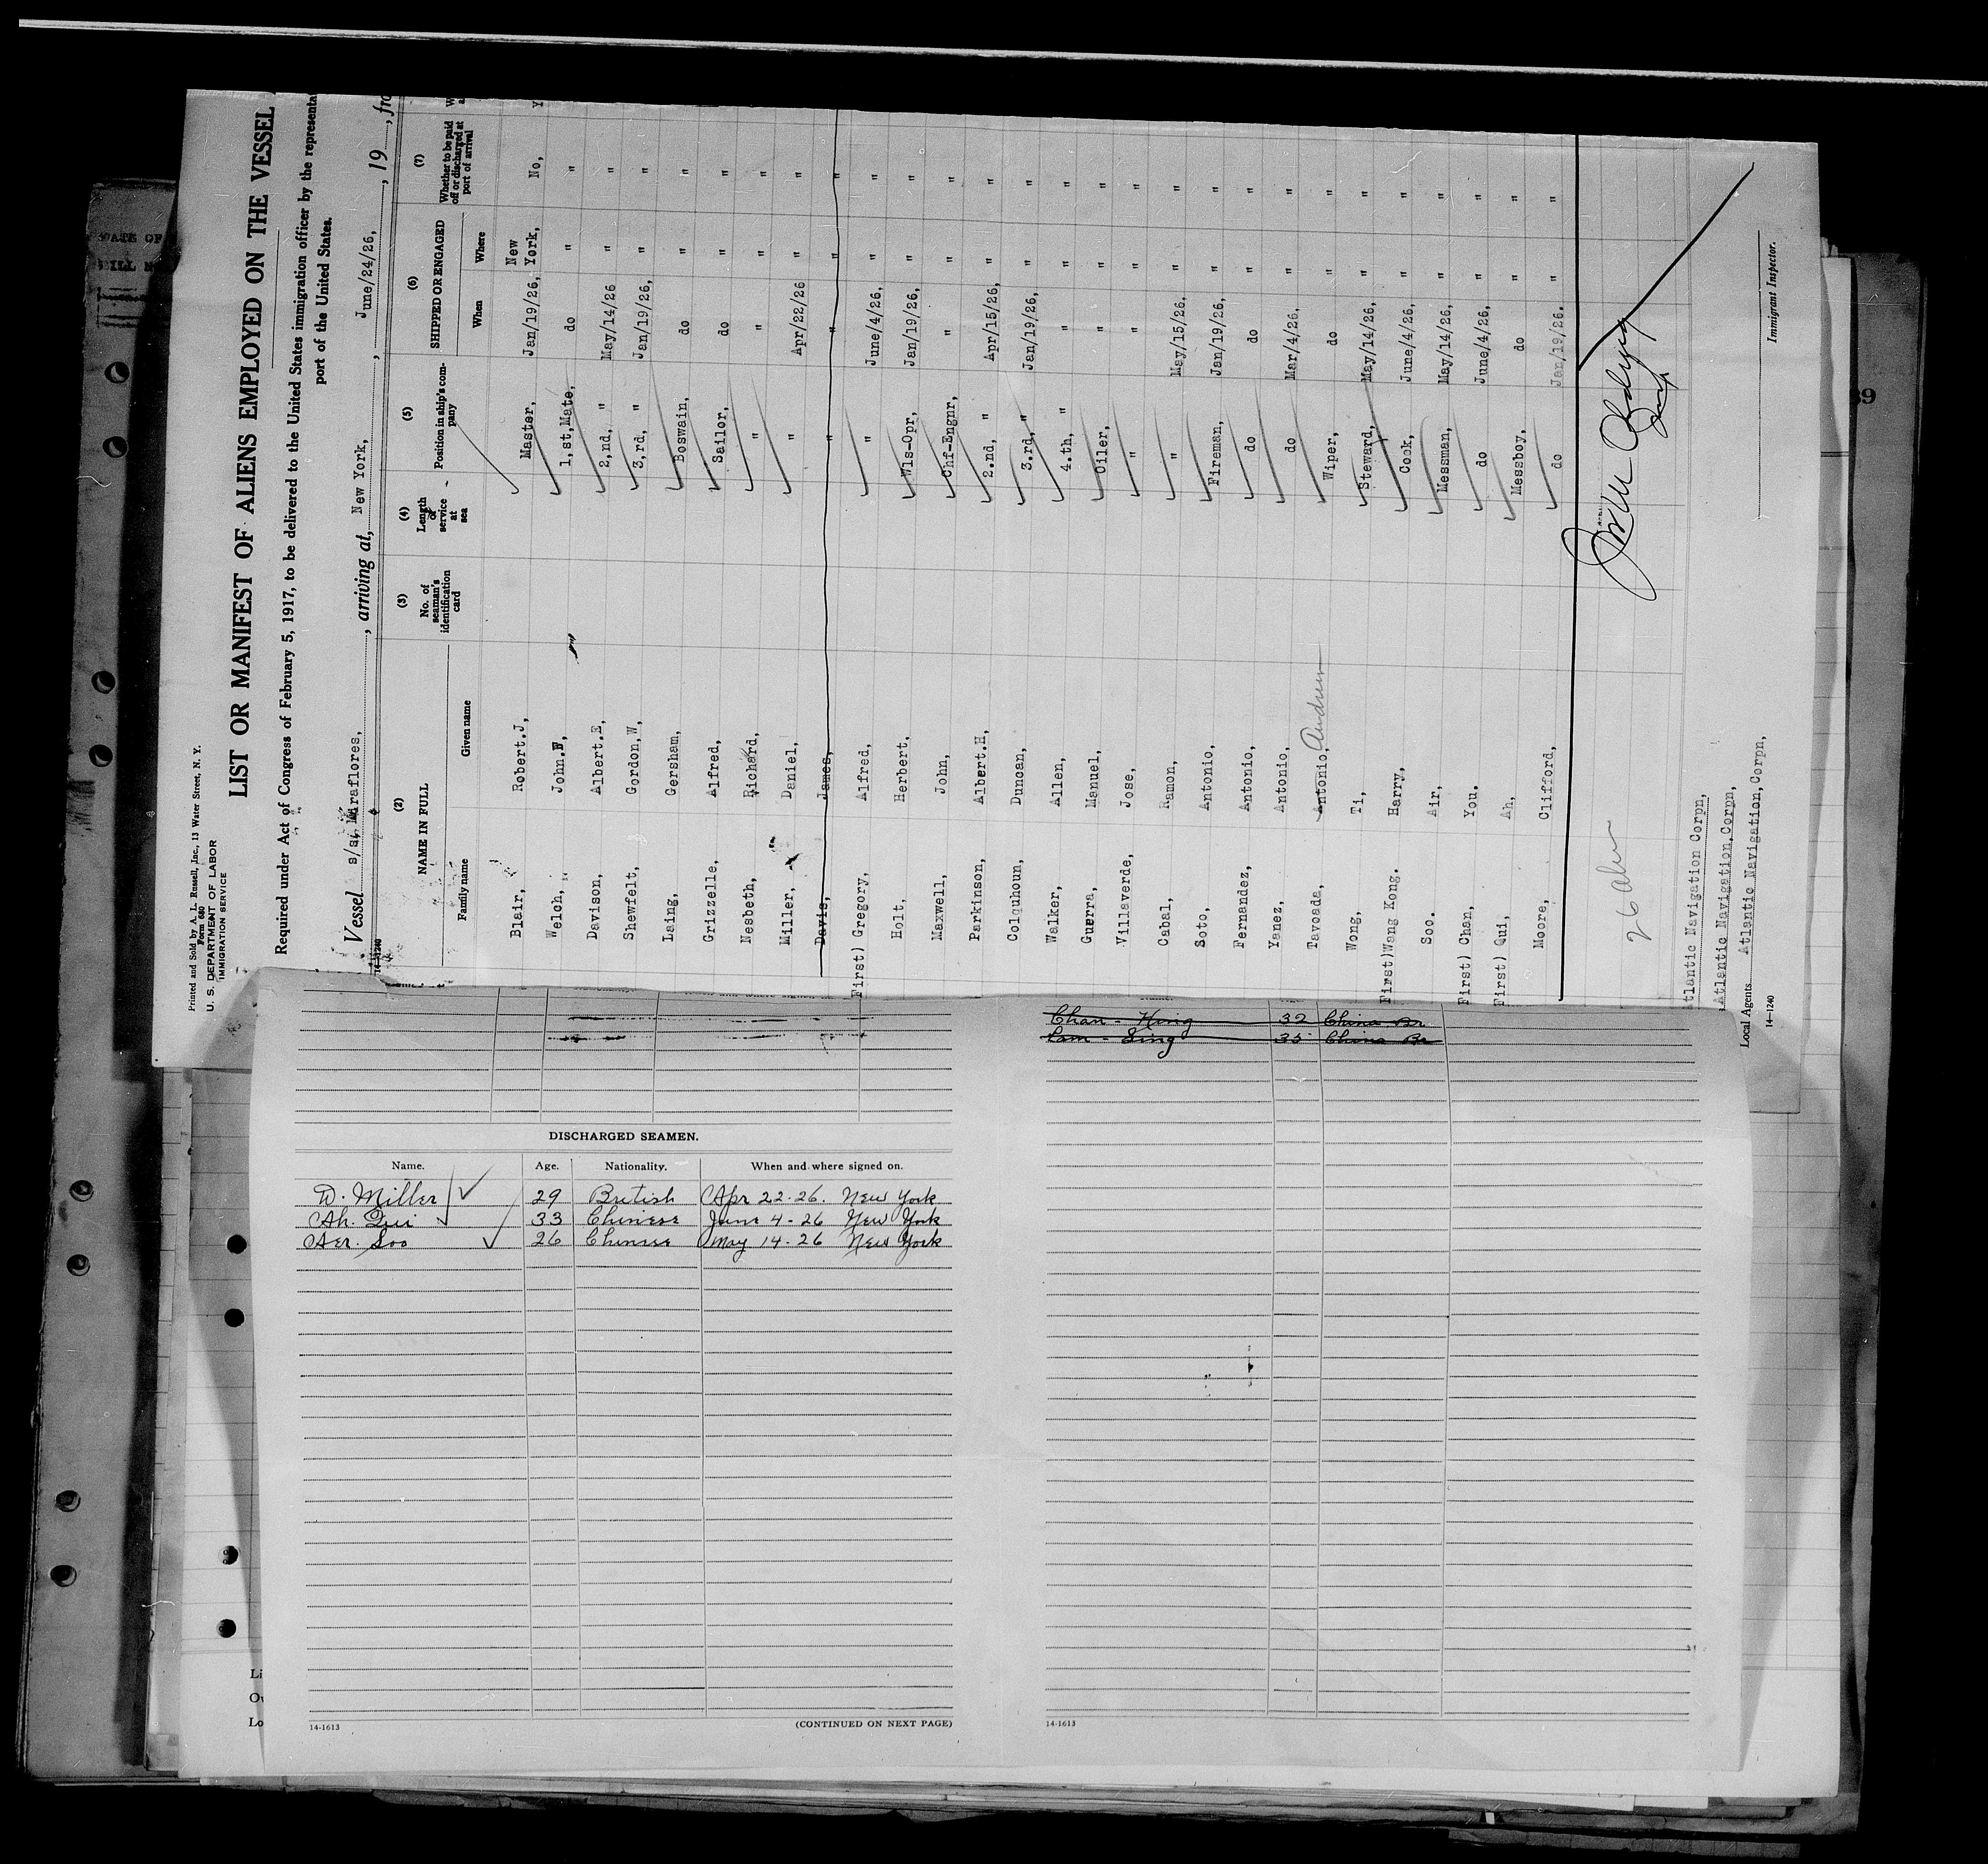 Printed and Sold by A. J. Russell, Inc., 13 Water Street, N. Y.
Form 680
U. S. DEPARTMENT OF LABOR
IMMIGRATION SERVICE
LIST OR MANIFEST OF ALIENS EMPLOYED ON THE VESSEL
Required under Act of Congress of February 5, 1917, to be delivered to the United States immigration officer by the representa
port of the United States.
Vessel s/s, Miraflores, , arriving at, New York, , June/24/26, , 19 , fro
14-1240
(2) (3) (4) (5) (6) (7)
NAME IN FULL No. of seaman's identification card Length of service at sea Position in ship's company SHIPPED OR ENGAGED Whether to be paid off or discharged at port of arrival
Family name Given name When Where
Blair, Robert.J, Master, Jan/19/26, New York, No, Y
Welch, John.F, 1,st,Mate, do " "
Davison, Albert.E, 2,nd, " May/14/26 " "
Shewfelt, Gordon,W, 3,rd, " Jan/19/26, " "
Laing, Gersham, Boswain, do " "
Grizzelle, Alfred, Sailor, do " "
Nesbeth, Richard, " " " "
Miller, Daniel, " Apr/22/26 " "
Davis, James, " " " "
First) Gregory, Alfred, " June/4/26, " "
Holt, Herbert, Wls-Opr, Jan/19/26, " "
Maxwell, John, Chf-Engnr, " " "
Parkinson, Albert.H, 2.nd, " Apr/15/26, " "
Colquhoun, Duncan, 3.rd, " Jan/19/26, " "
Walker, Allen, 4.th, " " " "
Guerra, Manuel, Oiler, " " "
Villaverde, Jose, " " " "
Cabal, Ramon, " May/15/26, " "
Soto, Antonio, Fireman, Jan/19/26, " "
Fernandez, Antonio, do do " "
Yanez, Antonio, do Mar/4/26, " "
Tavoada, Antonio, Andrew Wiper, do " "
Wong, Ti, Steward, May/14/26, " "
First) Wang Kong. Harry, Cook, June/4/26, " "
Soo. Air, Messman, May/14/26, " "
First) Chan, You. do June/4/26, " "
First) Qui, Ah, Messboy, do " "
Moore, Clifford, do Jan/19/26. " "
Atlantic Navigation Corpn,
Atlantic Navigation,Corpn,
Local Agents Atlantic Navigation,Corpn,
14-1240
Immigrant Inspector.
Chan - Hing 32 China Br
Lam - Sing 35 China Br
DISCHARGED SEAMEN.
Name. Age. Nationality. When and where signed on.
D. Miller 29 British Apr 22-26. New York
Ah. Qui 33 Chinese June 4-26 New York
Aer. Soo 26 Chinese May 14-26 New York
14-1613 (CONTINUED ON NEXT PAGE)
14-1613
Li
Ow
Lo